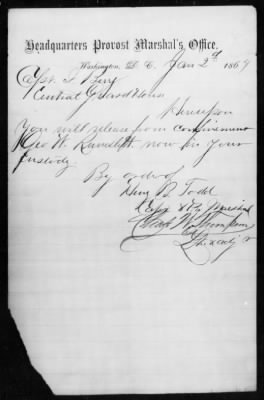 Headquarters Provost Marshal's Office,
Washington, D. C. Jan 2d 1864
Capt. T. Berry
Central Guard House
Hereupon
You will release from confinement
Geo W. now in your
custody
By order of
Henry B. Todd
Capt & Pro Marshal
Thompson